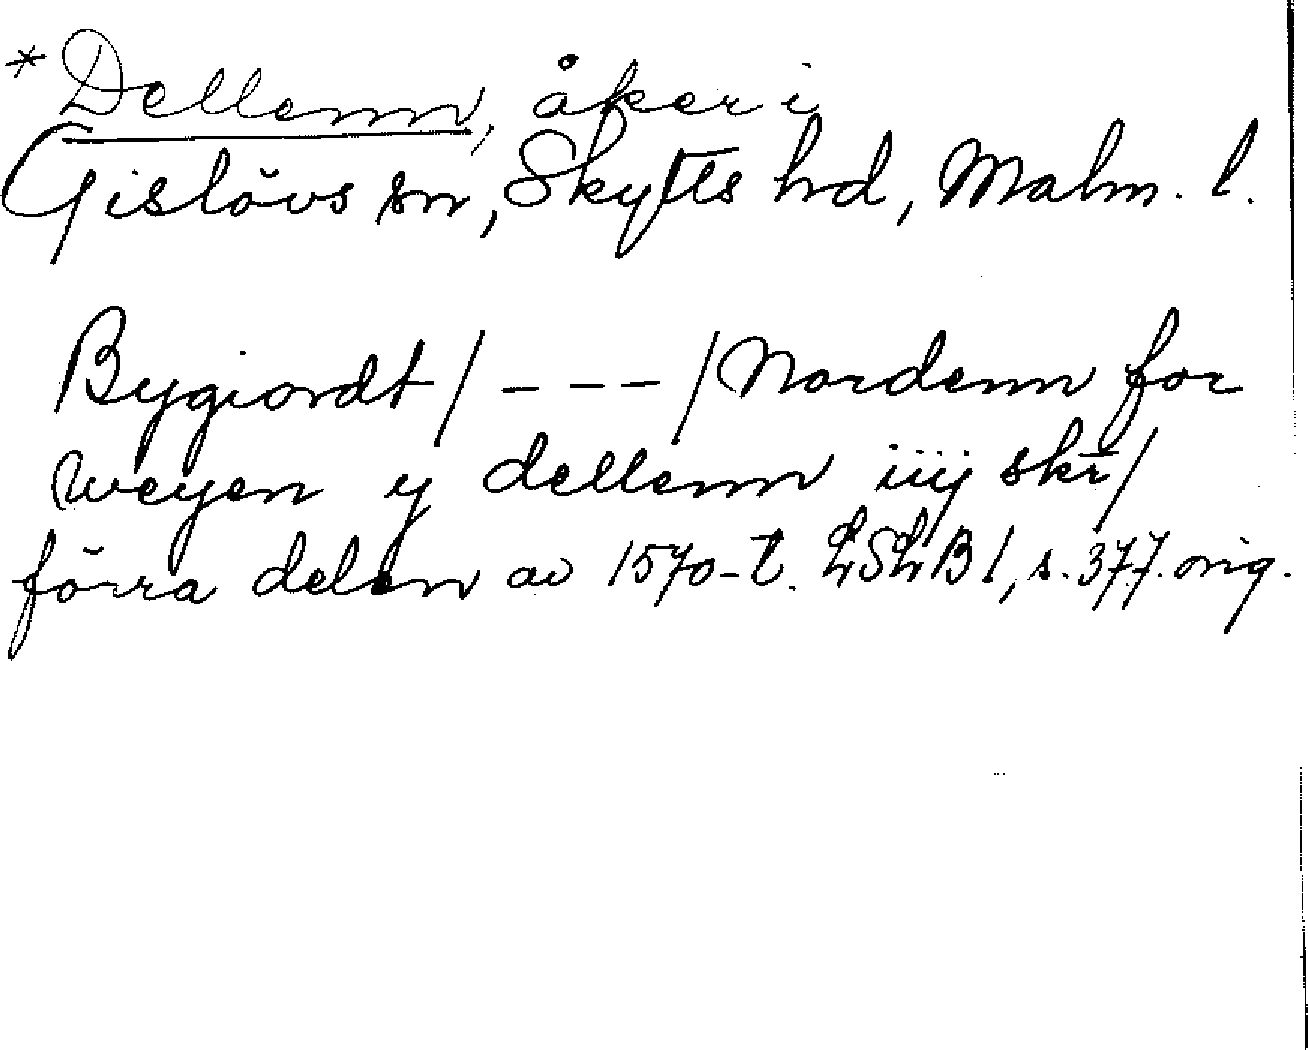 * Dellenn, åker i
Gislövs sn, Skytts hd, Malm. l.
Bygiordt / - - - / Nordenn for
weyen y dellenn iiij skr /
förra delen av 1570-t. LSLB 1, s. 377. orig.